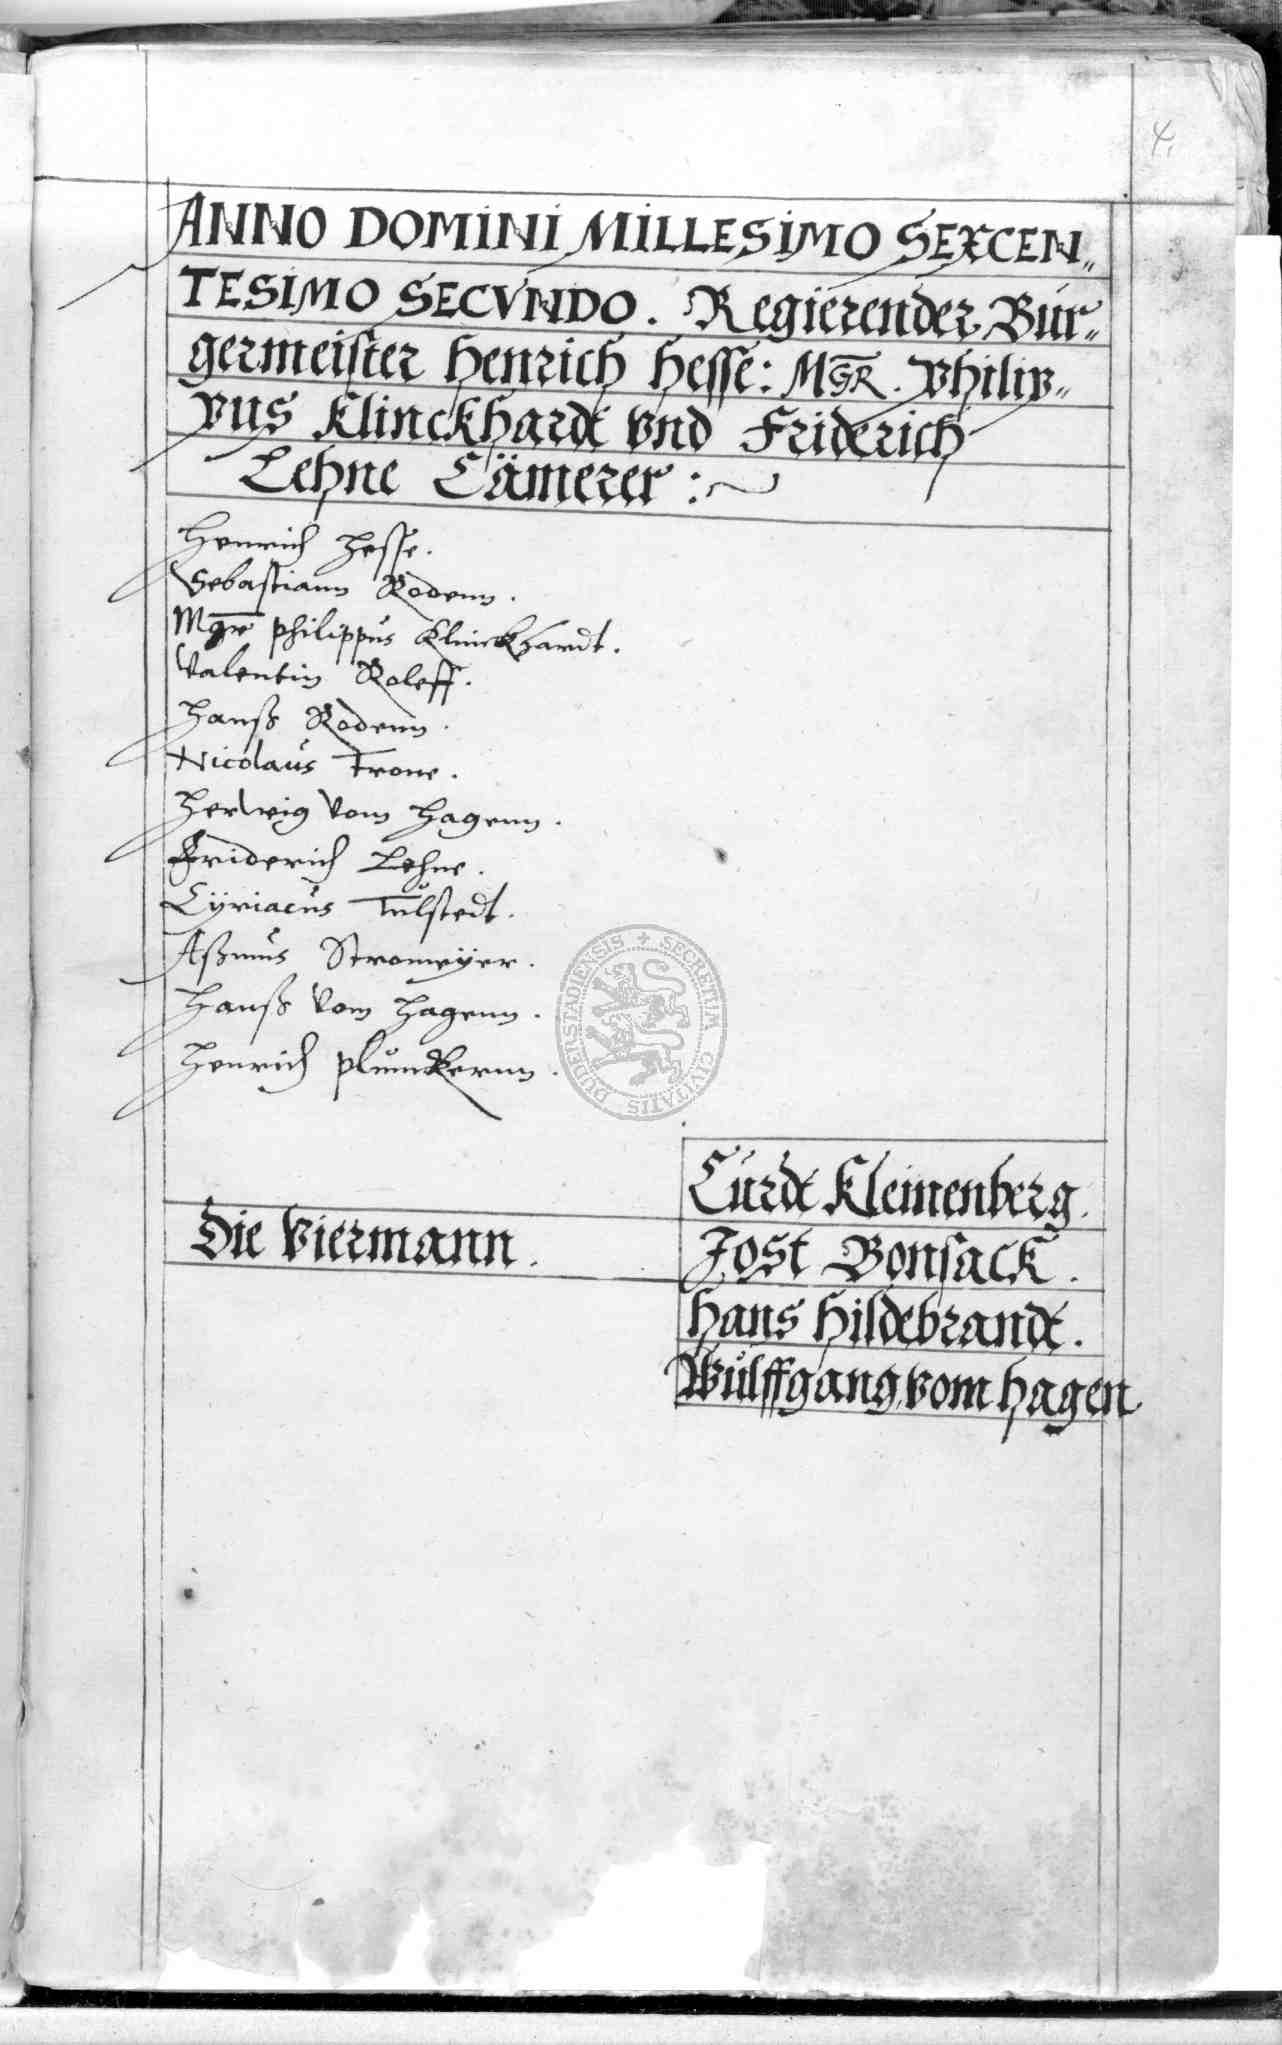 4.
ANNO DOMINI MILLESIMO SEXCEN„
TESIMO SECVNDO. Regierender Bür„
germeister Henrich Hesse: MGR. Philip„
pus Klinckhardt vnd Friderich
Lehne Cämerer :~
Henrich Hesse.
Sebastiann Rodenn.
Mgr philippus Klinckhardt.
Valentin Roleff.
Hanß Rodenn.
Nicolaus Trone.
Herwig vom Hagenn.
Friderich Lehne.
Cyriacus Tulstedt.
Aßmus Stromeÿer.
Hanß vom Hagenn.
Henrich plümckenn.
SECRETUM CIVITATIS DUDERSTADIENSIS
Curdt Kleinenberg.
Die Viermann.
Jost Bonsack.
Hans Hildebrandt.
Wulffgang vom Hagen